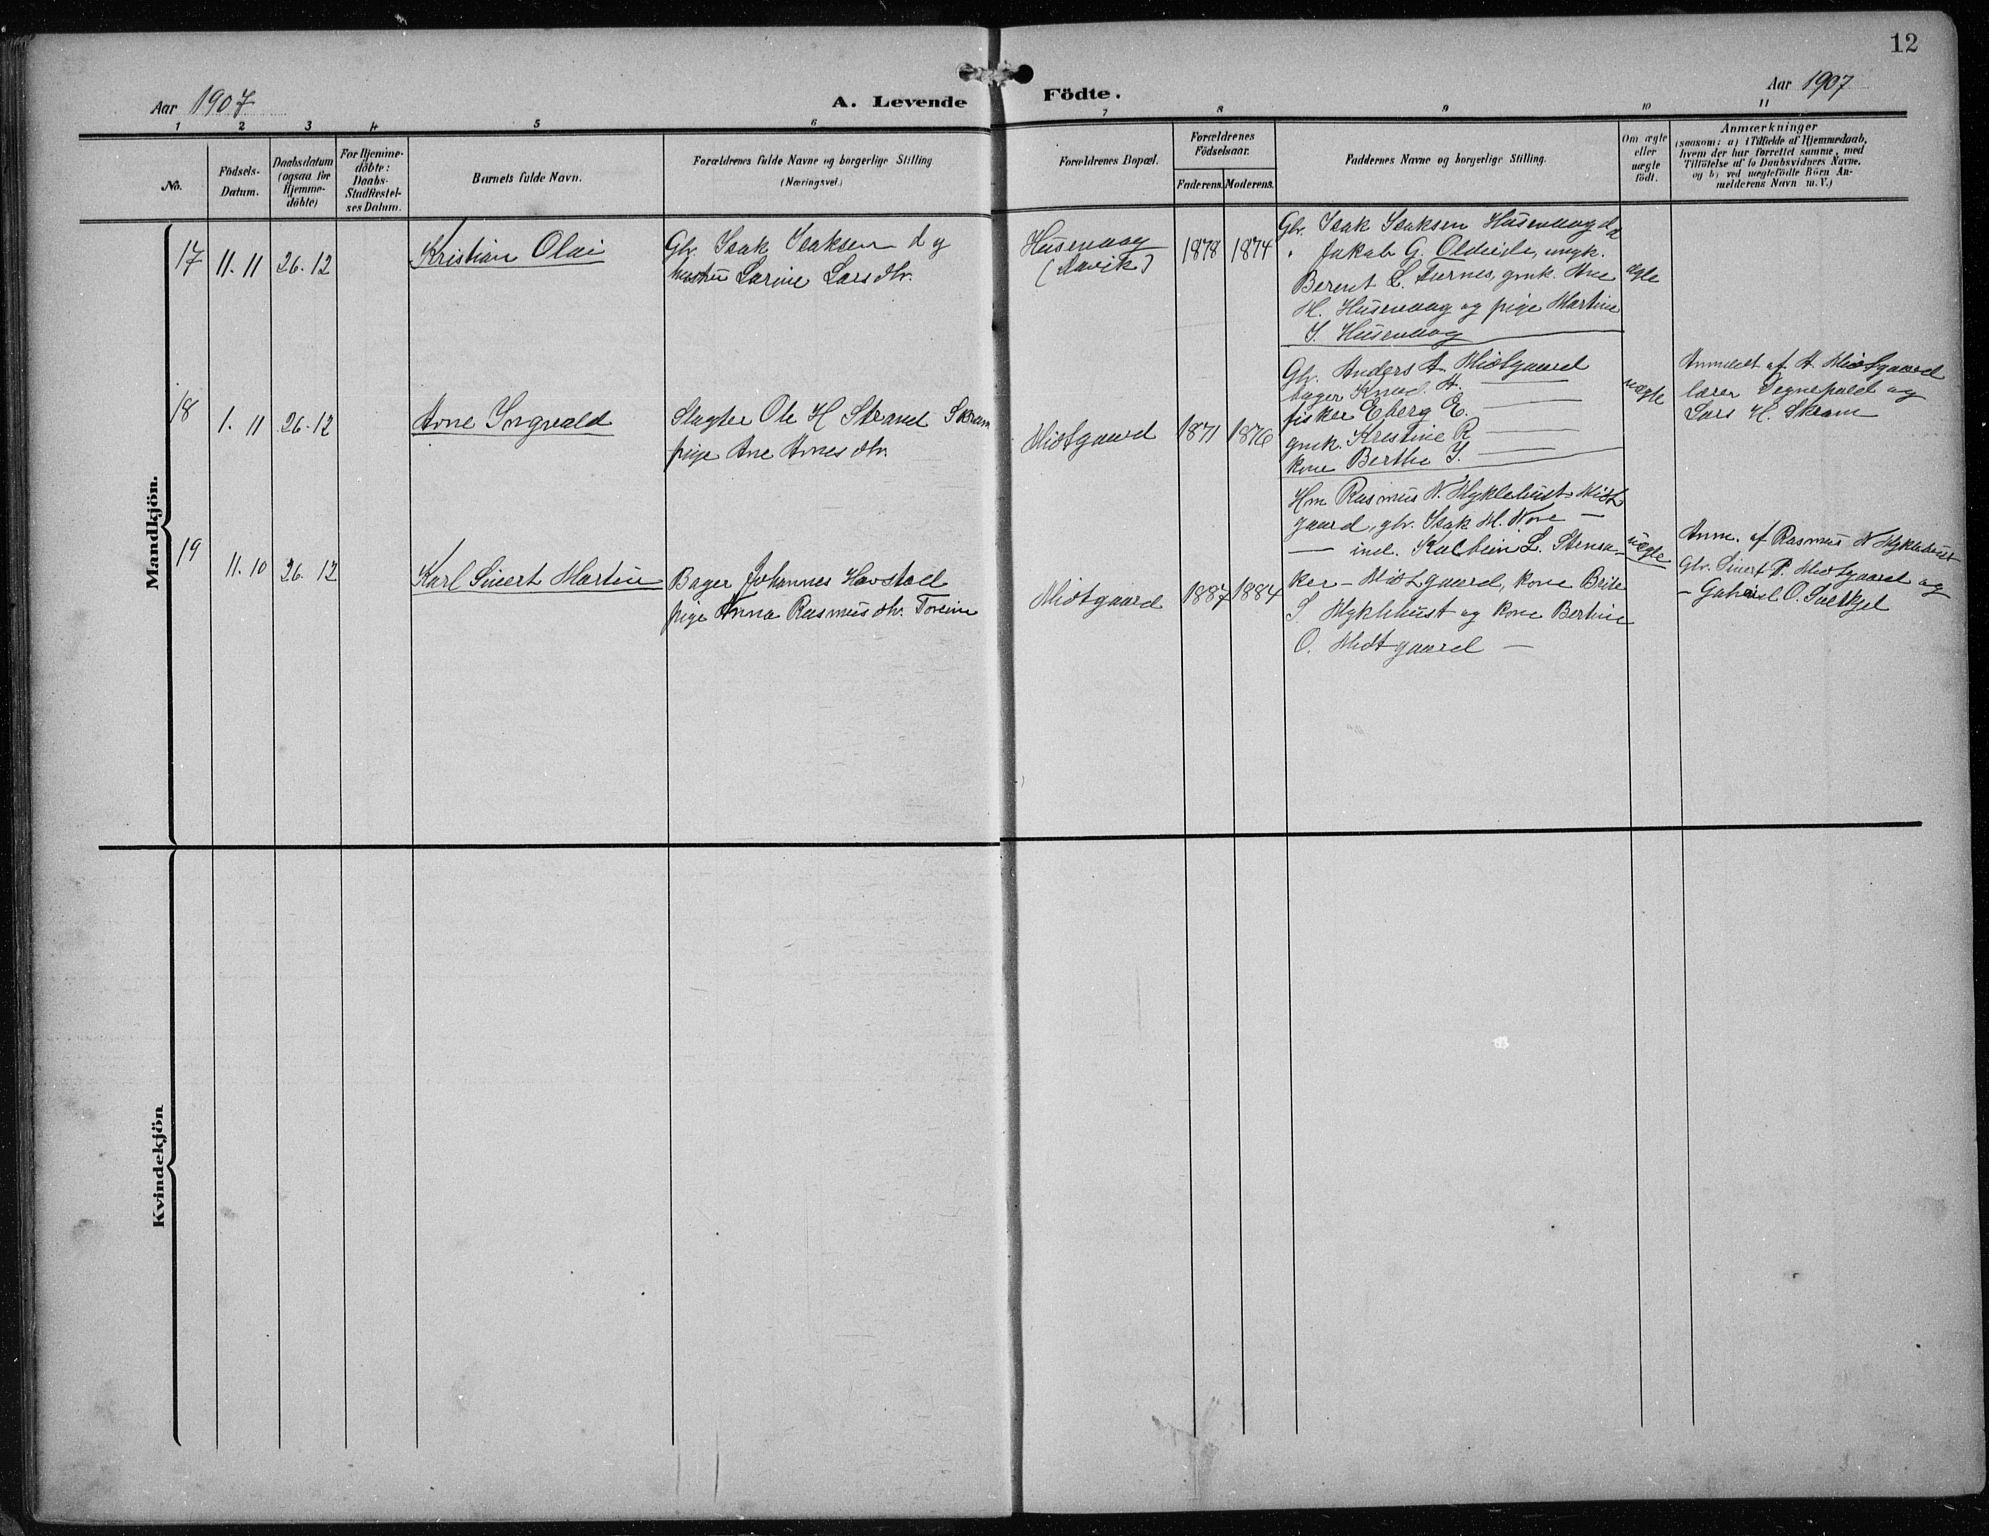 12
Aar 1907
A. Levende Födte.
Aar 1907
1 2 3 4 5 6 7 8 9 10 11
No.
Födsels-
Datum.
Daabsdatum
(ogsaa for
Hjemme-
döbte)
For Hjemme-
döbte:
Daabs-
Stadfæstel-
ses Datum.
Barnets fulde Navn.
Forældrenes fulde Navne og borgerlige Stilling
(Næringsvei.)
Forældrenes Bopæl.
Forældrenes
Födselsaar.
Faderens. Moderens.
Faddernes Navne og borgerlige Stilling.
Om ægte
eller
uægte
födt.
Anmærkninger
(saasom: a) i Tilfælde af Hjemmedaab,
hvem der har forrettet samme, med
Tilföielse af to Daabsvidners Navne.
og b) ved uægtefödte Börn An-
melderens Navn m. V.)
Mandkjön.
17
11.11
26.12
Kristian Olai
Gbr. Isak Isaksen og
hustru Larine Larsdtr.
Husevaag
(Aavik)
1878
1874
Gbr. Isak Isaksen Husevaag
" Jakob G. Oldeide, ungk.
Berent L. Furnes, gmk. Ane
M. Husevaag og pige Martine
I. Husevaag
ægte
18
1.11
26.12
Arne Ingvald
Slagter Ole H Strand Skram
pige Ane Arnesdtr.
Midtgaard
1871
1876
Gbr. Anders A Midtgaard
bager Knud A. —
fisker Eberg E. —
gmk. Kristine R. —
kone Berthe I. —
uægte
Anmeldt af A Midtgaard
lærer Vegnepold og
Lars H. Skram
19
11.10
26.12
Karl Sivert Martin
Bager Johannes Havstad
pige Anna Rasmusdtr.
Midtgaard
1887
1884
Hm Rasmus N. Myklebust Midt
gaard, gbr. Isak M. Nore —
— ind. Kolbein L. Stensa-
ker — Midtgaard, kone Brite
S. Myklebust og kone Bertine
O. Midtgaard —
uægte
Anm. af Rasmus N Myklebust
Gbr. Sivert P. Midtgaard og
— Gabriel O.
Kvindekjön